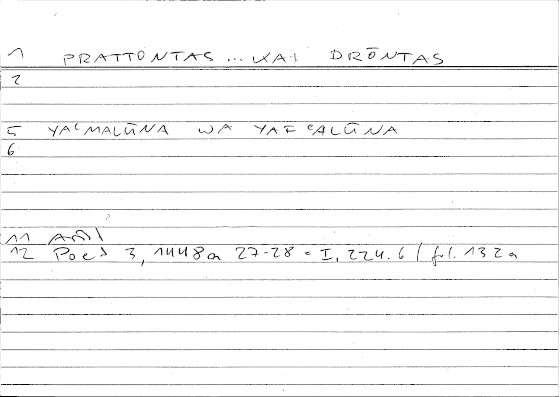 1 PRATTŌNTAS ... KAI DRŌNTAS
2
5 YAʿMALŪNA WA YAFʿALŪNA
6
11
12 Poet 3, 1448a 27-28 = I, 224.6 / fol. 132a